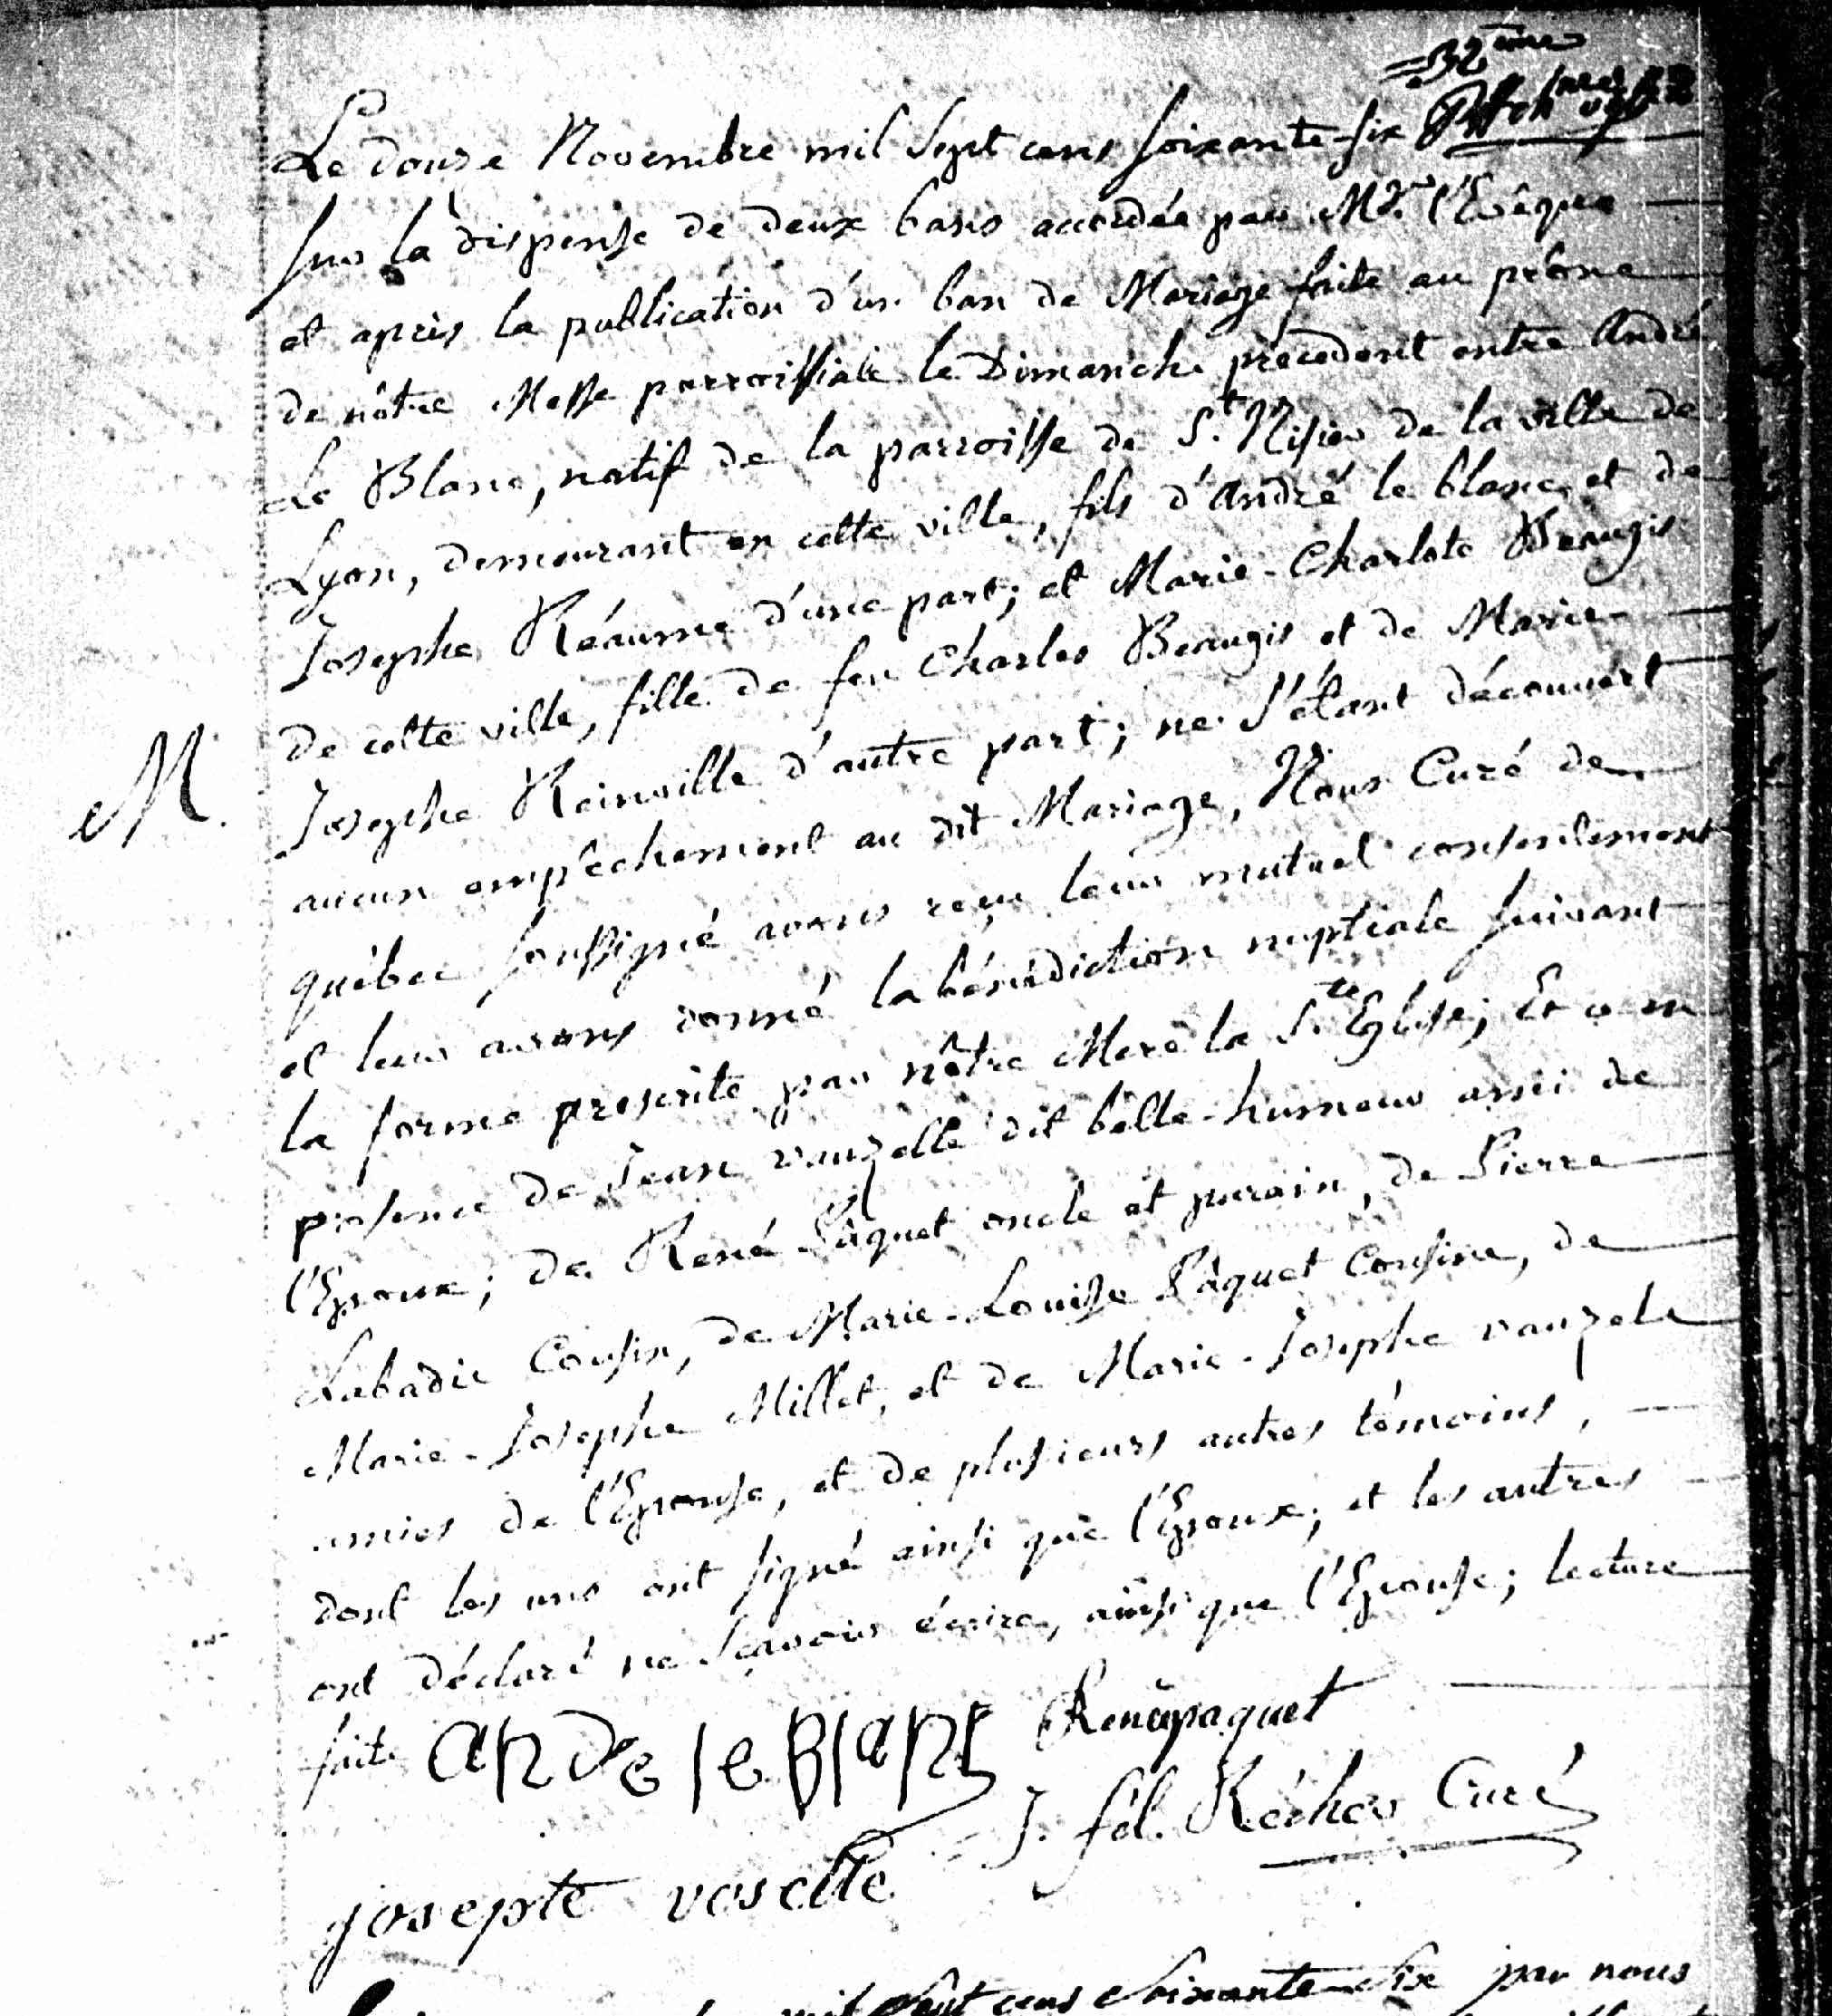 32eme
Le douze Novembre mil Sept cens soixante-six
sur la dispense de deux bans accordée par Mgr. l'Evêque
et après la publication d'un ban de Mariage faite au prône
de nôtre Messe parroissiale le Dimanche precedent entre André
Le Blanc, natif de la parroisse de St. Nisier de la ville de
Lyon, demeurant en cette ville, fils d'André le blanc et de
Josephe Réaume d'une part; et Marie-Charlote Beaugis
de cette ville, fille de feu Charles Beaugis et de Marie-
Josephe Rainville d'autre part; ne s'étant découvert
M.
aucun empêchement au dit Mariage, Nous Curé de
québec soussigné avons reçu leur mutuel consentement
et leur avons donné la bénédiction nuptiale suivant
la forme prescrite par nôtre Mere la Ste Eglise; Et ce en
presence de Jean vauzelle dit belle-humeur ami de
l'Epoux; de René Pâquet oncle et parain, de Pierre
Labadie Cousin, de Marie-Louise Pâquet Cousine, de
Marie-Josephe Millet, et de Marie-Josephe vauzele
amies de l'Epouse, et de plusieurs autres témoins,
dont les uns ont signé ainsi que l'Epoux; et les autres
ont déclaré ne sçavoir écrire, ainsi que l'Epouse; lecture
faite andre le Blanc Renépaquet
J. fél. Récher Curé
josepte voselle
mil sept cens soixante-six par nous